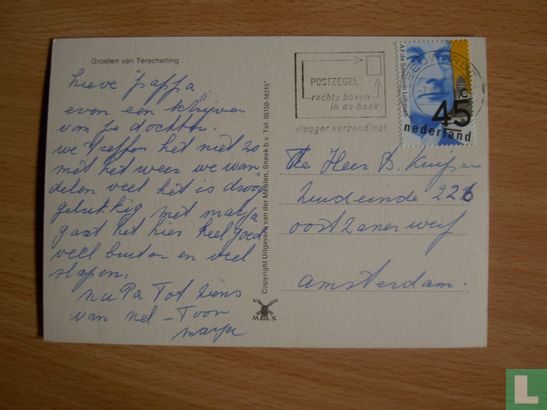 Groeten van Terschelling
Lieve Pappa
even een schrijven
van je dochter.
we treffen het niet zo
met het weer we wan
delen veel het is droog
gelukkig, met marja
gaat het hier heel goed
veel buiten en veel
slapen.
nu Pa Tot Ziens
van nel - Toon
marja
Copyright Uitgeverij van der Meulen, Sneek b.v. Tel. 05150-16315*
M S
POSTZEGEL
rechts boven
in de hoek
vlugger verzending!
A.F. de Savornin Lohman
45 c
nederland
De Heer B. Kuyper
Zuideinde 226
oostzanerwerf
amsterdam.
L